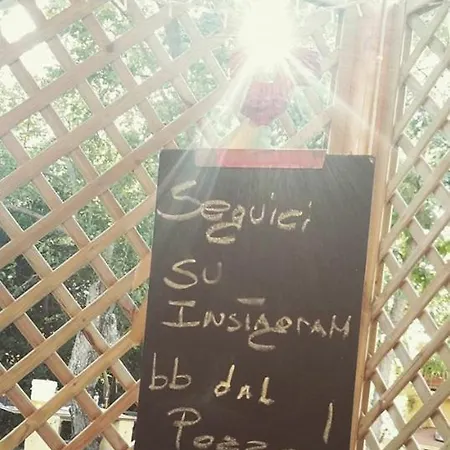 Seguici
su
Instagram
bb dal